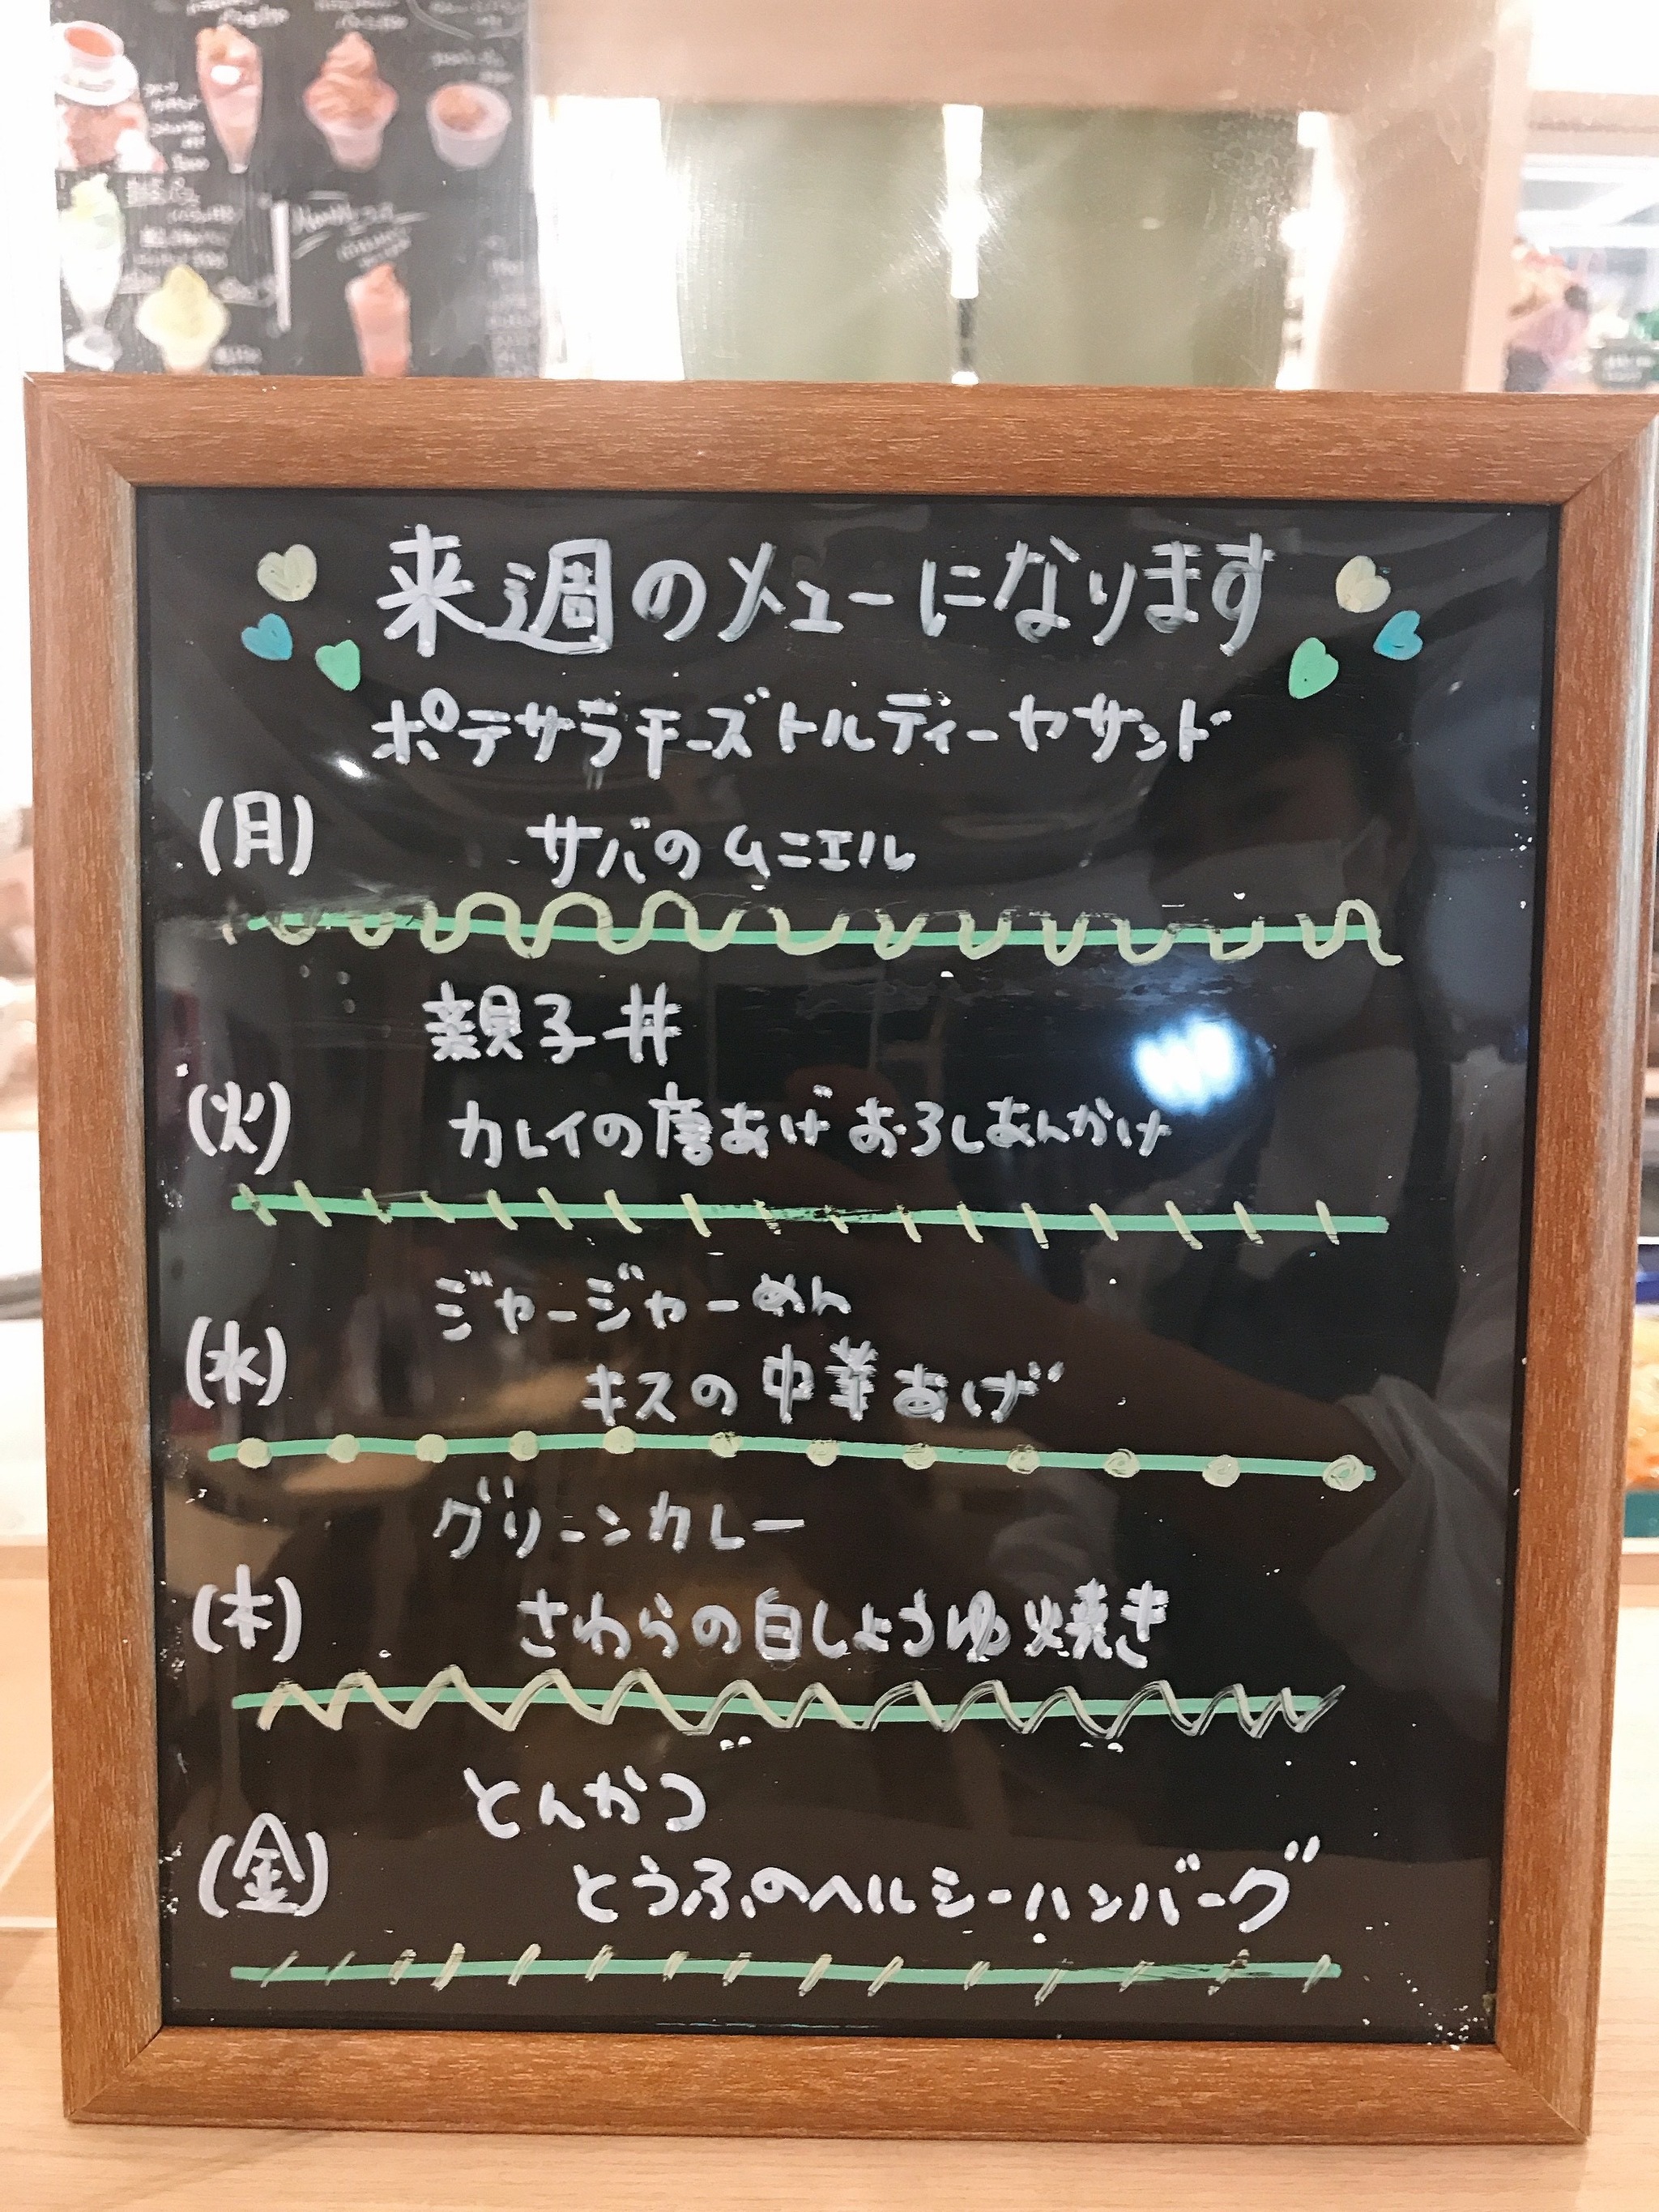 来週のメニューになります
ポテサラチーズトルティーヤサンド
(月)
サバのムニエル
親子丼
(火)
カレイの唐あげ おろしあんかけ
ジャージャーめん
(水)
キスの中華あげ
グリーンカレー
(木)
さわらの白しょうゆ焼き
とんかつ
(金)
とうふのヘルシーハンバーグ